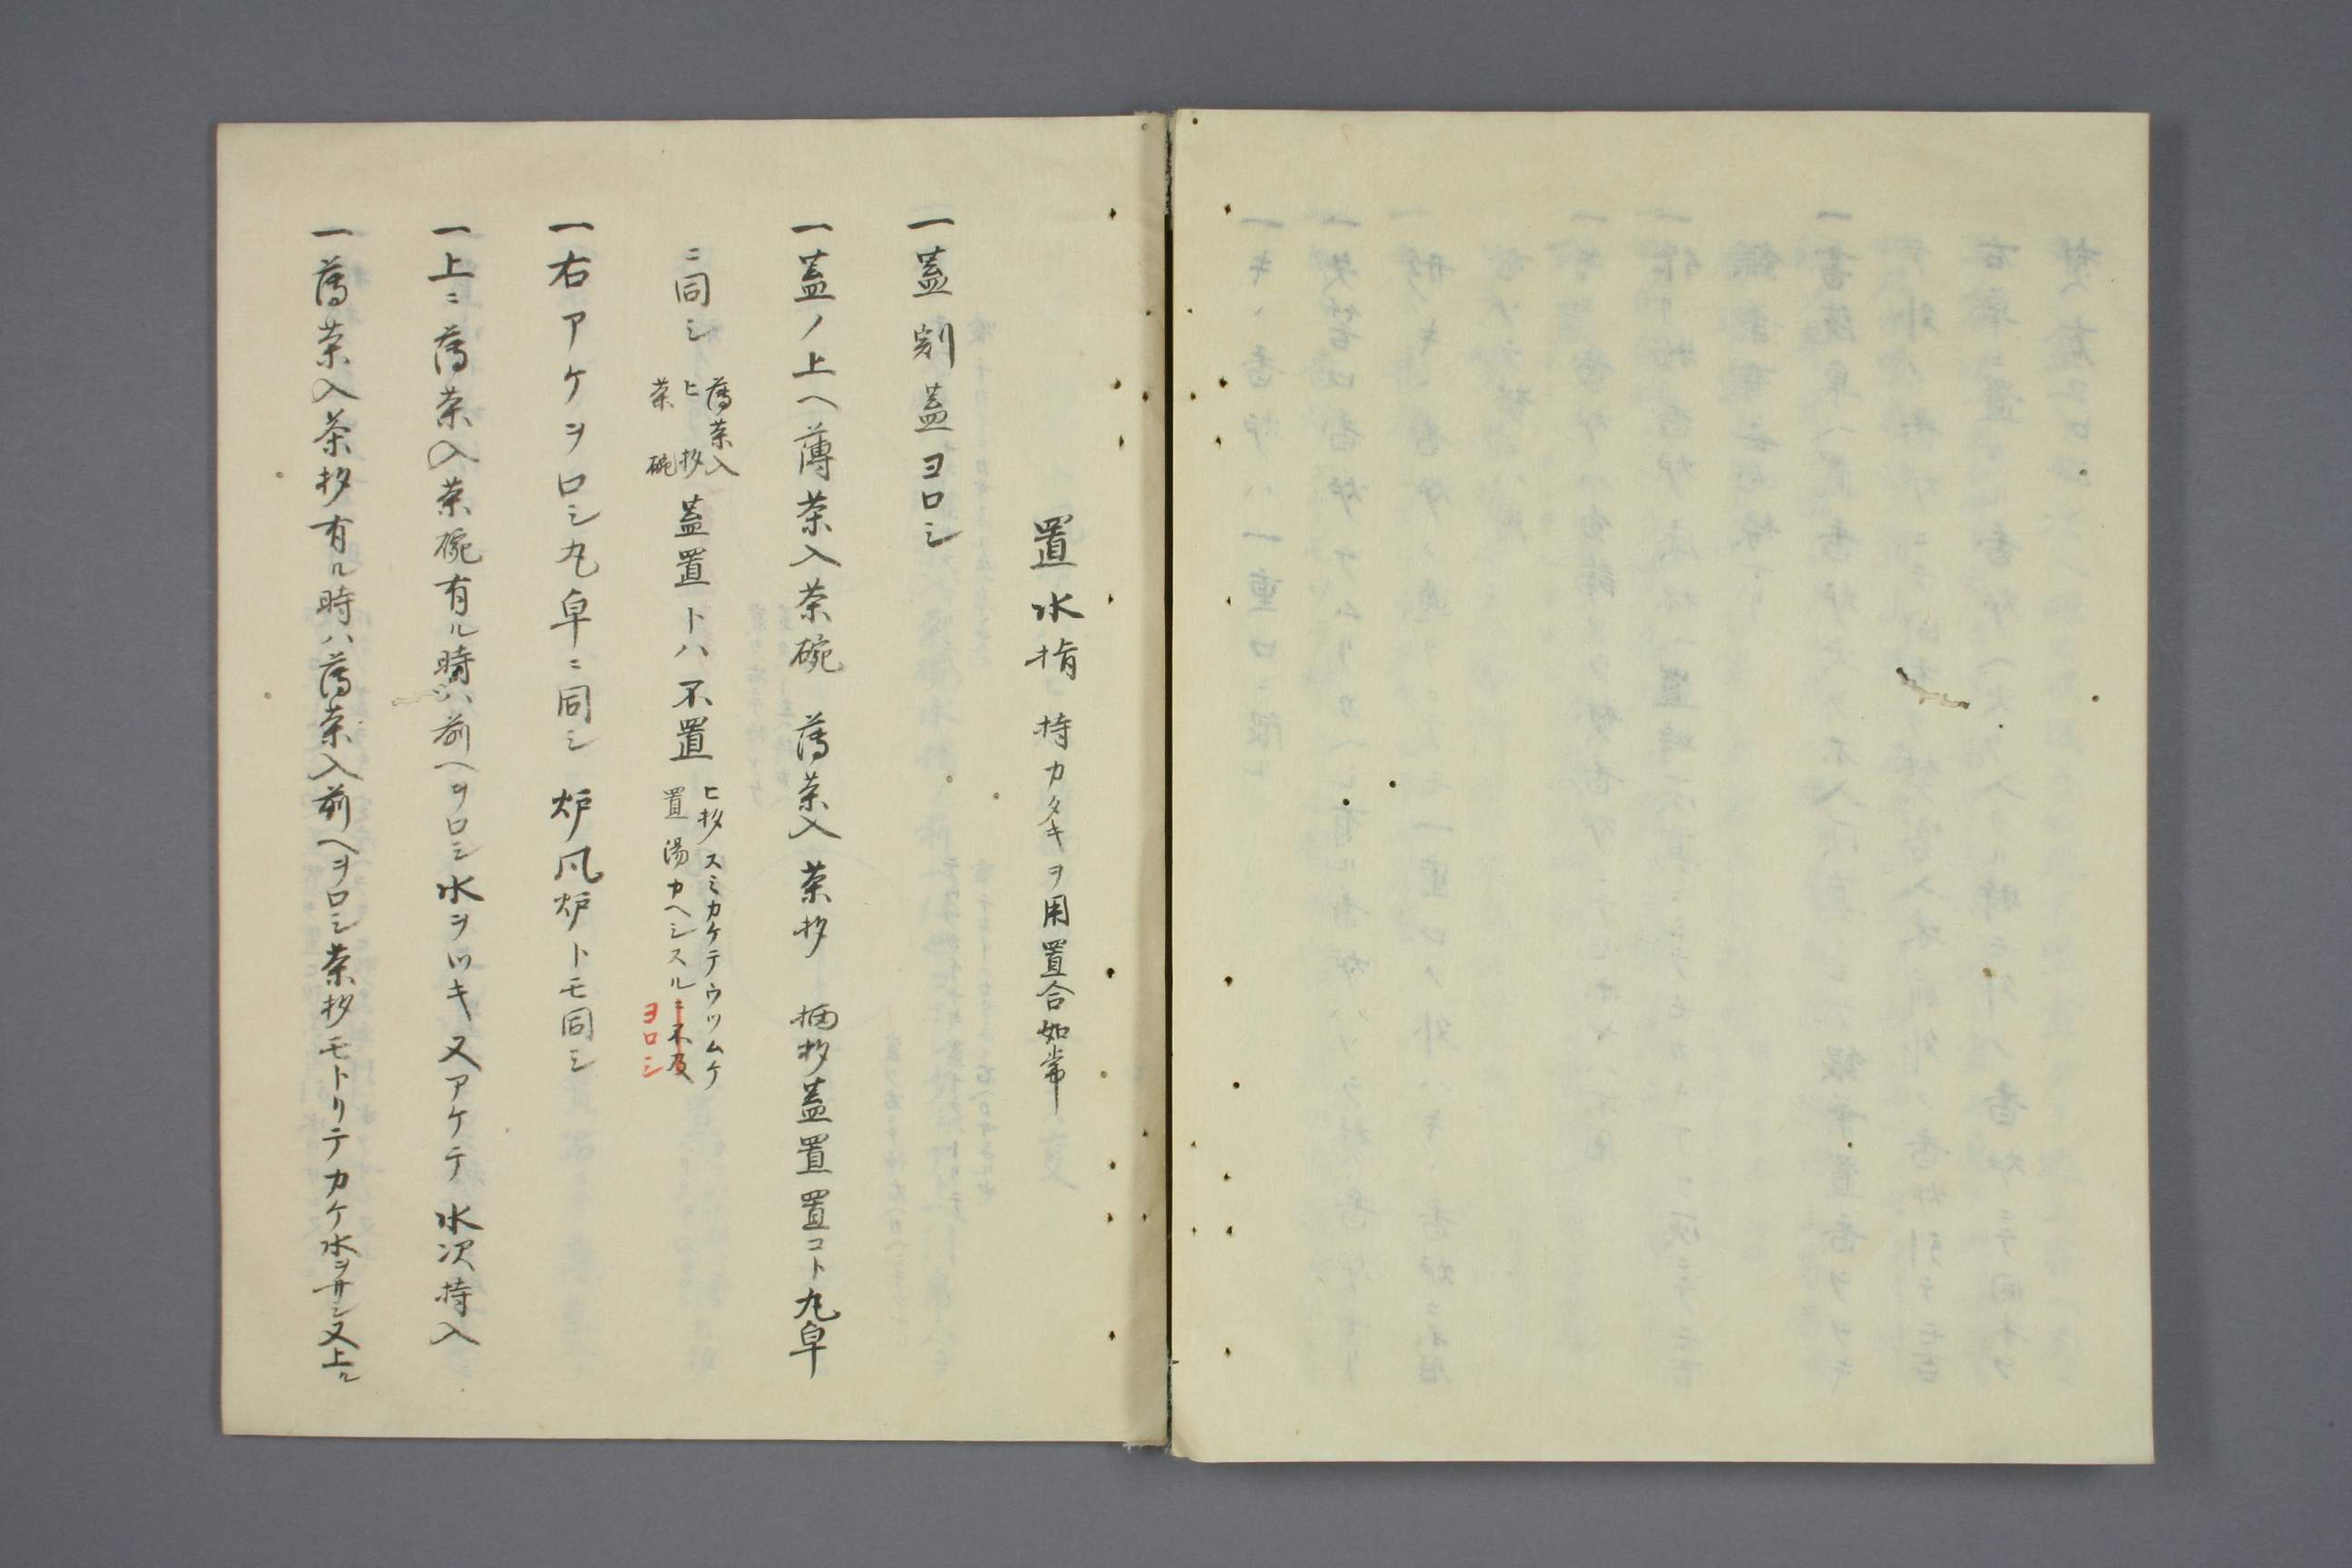 置水指 持カタキヲ用置合如常
一蓋割蓋ヨロシ
一蓋ノ上ヘ薄茶入茶碗 薄茶入茶杓 柄杓蓋置置コト丸卓
ニ同シ
薄茶入
ヒ杓
茶碗
蓋置トハ不置
ヒ杓スミカケテウツムケ
置湯カヘシスルニ不及
ヨロシ
一右アケヲロシ丸卓ニ同シ 炉風炉トモ同シ
一上ニ薄茶入茶碗有ル時ハ前ヘヲロシ水ヲツキ又アケテ水次持入
一薄茶入茶杓有ル時ハ薄茶入前ヘヲロシ茶杓モトリテカケ水ヲサシ又上ル